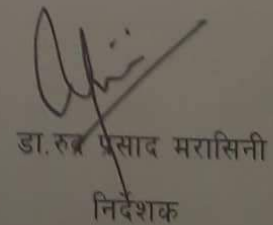 डा. रुद्र प्रसाद मरासिनी
निर्देशक